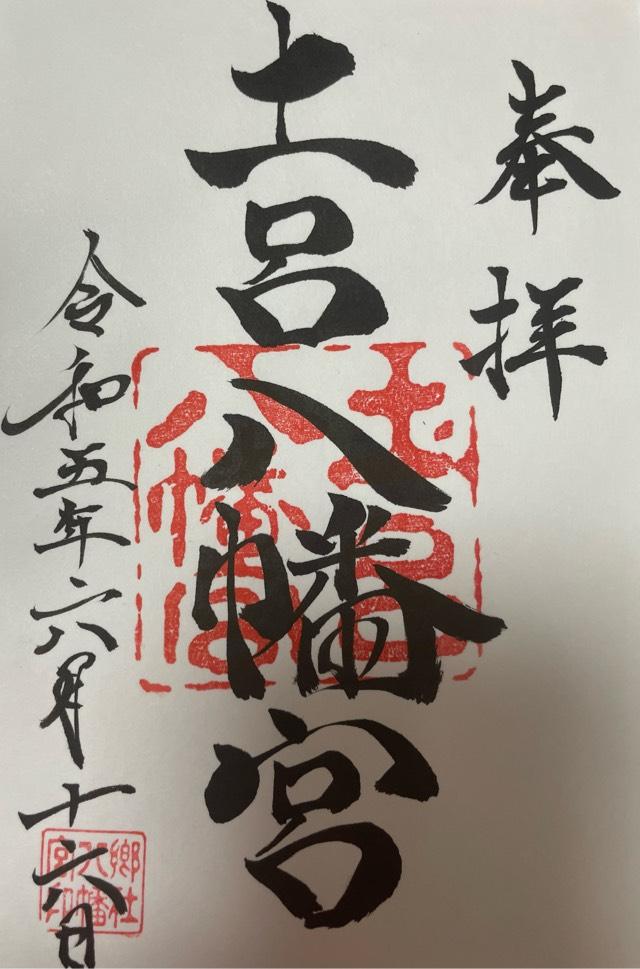 奉拝
土呂八幡宮
令和五年六月十六日
土呂
八幡宮
郷社
八幡
宮印